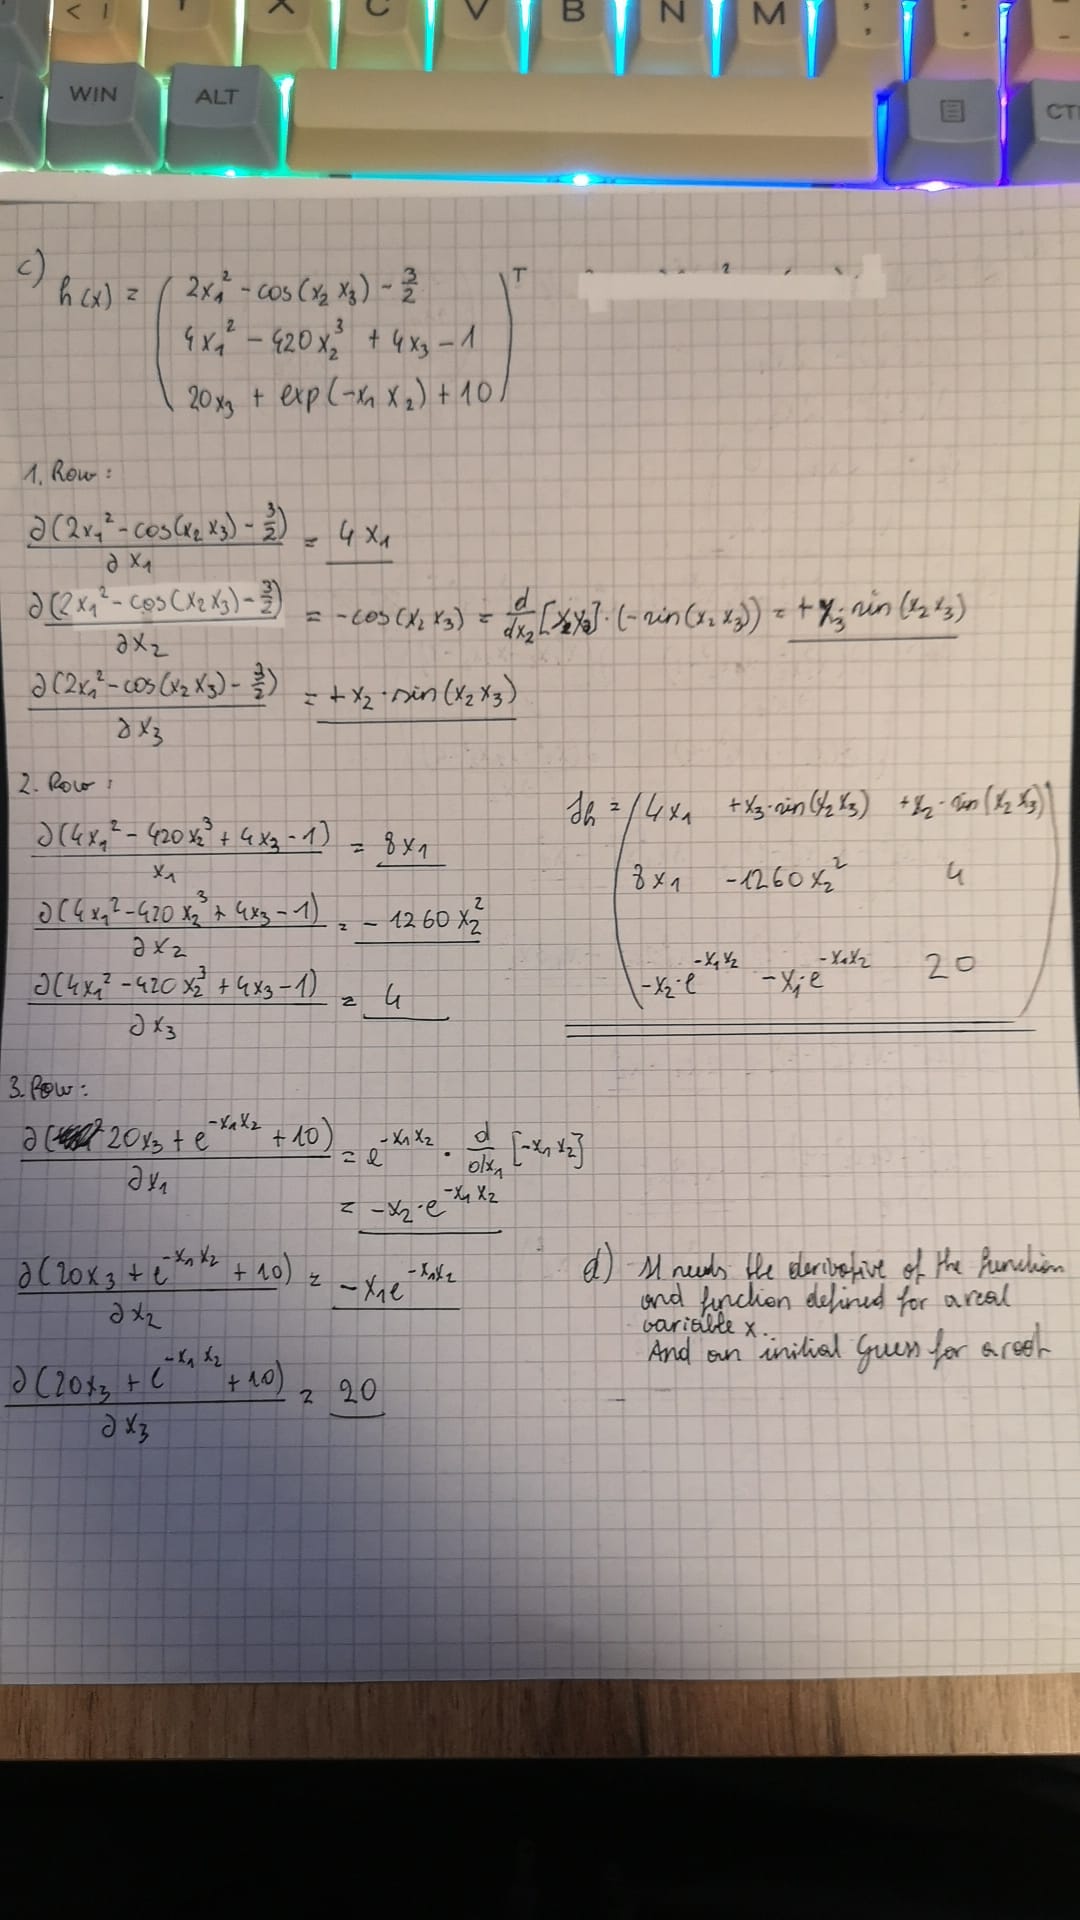 WIN ALT X C V B N M ; : CT
c)
h(x) = ( 2x₁² - cos(x₂ x₃) - 3/2
4x₁² - 420x₂³ + 4x₃ - 1
20x₃ + exp(-x₁ x₂) + 10 )ᵀ
1. Row:
∂(2x₁² - cos(x₂ x₃) - 3/2) / ∂x₁ = 4x₁
∂(2x₁² - cos(x₂ x₃) - 3/2) / ∂x₂ = -cos(x₂ x₃) = d/dx₂ [x₂x₃] · (-sin(x₂ x₃)) = +x₃ sin(x₂ x₃)
∂(2x₁² - cos(x₂ x₃) - 3/2) / ∂x₃ = +x₂ · sin(x₂ x₃)
2. Row:
∂(4x₁² - 420x₂³ + 4x₃ - 1) / x₁ = 8x₁
∂(4x₁² - 420x₂³ + 4x₃ - 1) / ∂x₂ = -1260x₂²
∂(4x₁² - 420x₂³ + 4x₃ - 1) / ∂x₃ = 4
Jh = ( 4x₁ +x₃·sin(x₂ x₃) +x₂·sin(x₂ x₃)
8x₁ -1260x₂² 4
-x₂·e^(-x₁x₂) -x₁·e^(-x₁x₂) 20 )
3. Row:
∂(20x₃ + e^(-x₁x₂) + 10) / ∂x₁ = e^(-x₁x₂) · d/dx₁ [-x₁ x₂]
= -x₂·e^(-x₁x₂)
∂(20x₃ + e^(-x₁x₂) + 10) / ∂x₂ = -x₁e^(-x₁x₂)
∂(20x₃ + e^(-x₁x₂) + 10) / ∂x₃ = 20
d) It needs the derivative of the function
and function defined for a real
variable x.
And an initial Guess for a root